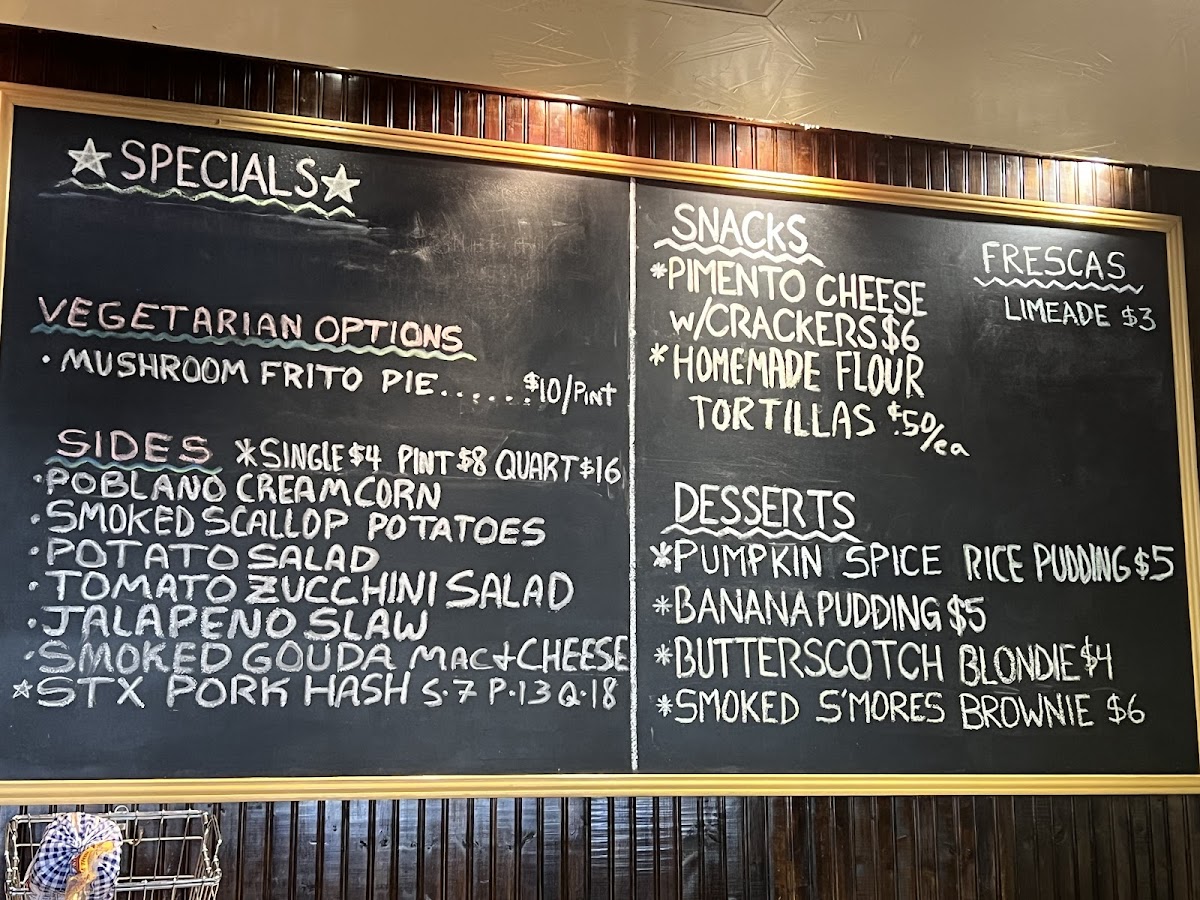 ☆SPECIALS☆
VEGETARIAN OPTIONS
• MUSHROOM FRITO PIE......$10/PINT
SIDES *SINGLE $4 PINT $8 QUART $16
• POBLANO CREAM CORN
• SMOKED SCALLOP POTATOES
• POTATO SALAD
• TOMATO ZUCCHINI SALAD
• JALAPENO SLAW
• SMOKED GOUDA MAC + CHEESE
☆ STX PORK HASH S·7 P·13 Q·18
SNACKS
*PIMENTO CHEESE
W/CRACKERS $6
*HOMEMADE FLOUR
TORTILLAS $.50/ea
FRESCAS
LIMEADE $3
DESSERTS
*PUMPKIN SPICE RICE PUDDING $5
*BANANA PUDDING $5
*BUTTERSCOTCH BLONDIE $4
*SMOKED S'MORES BROWNIE $6